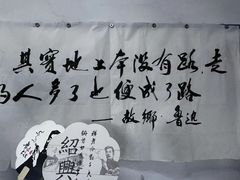 其实地上本没有路，走
的人多了也便成了路
——故乡·鲁迅
紹興